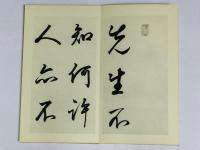 先生不
知何许
人亦不